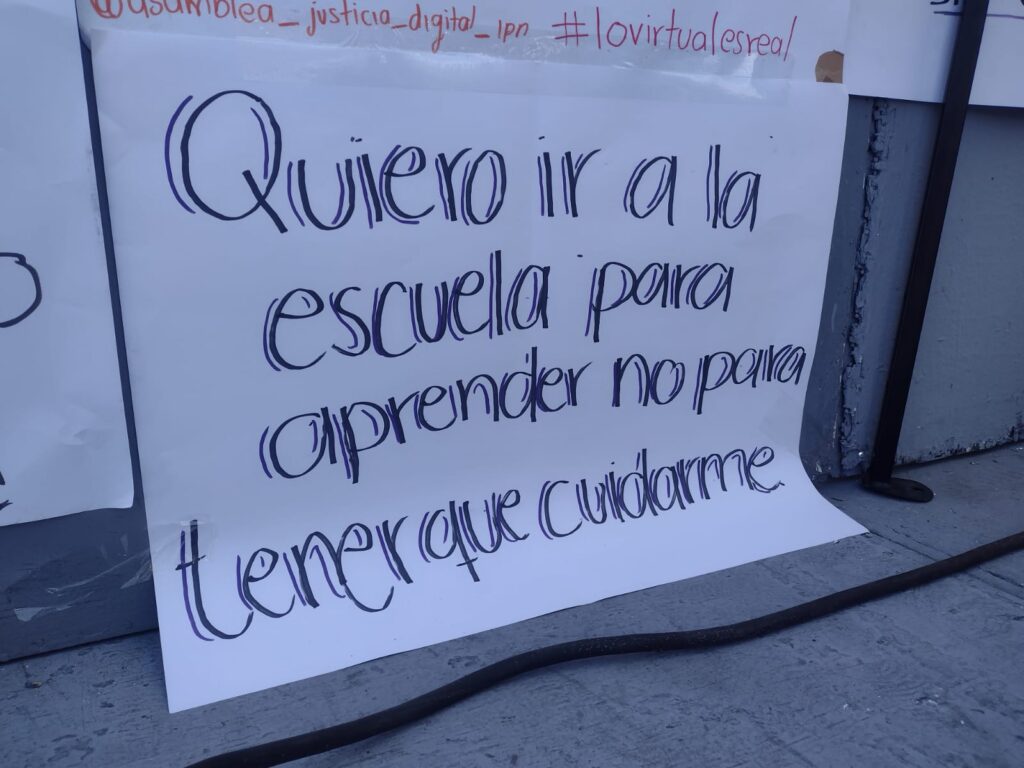 @asamblea_justicia_digital_ipn #lovirtualesreal
Quiero ir a la
escuela para
aprender no para
tener que cuidarme